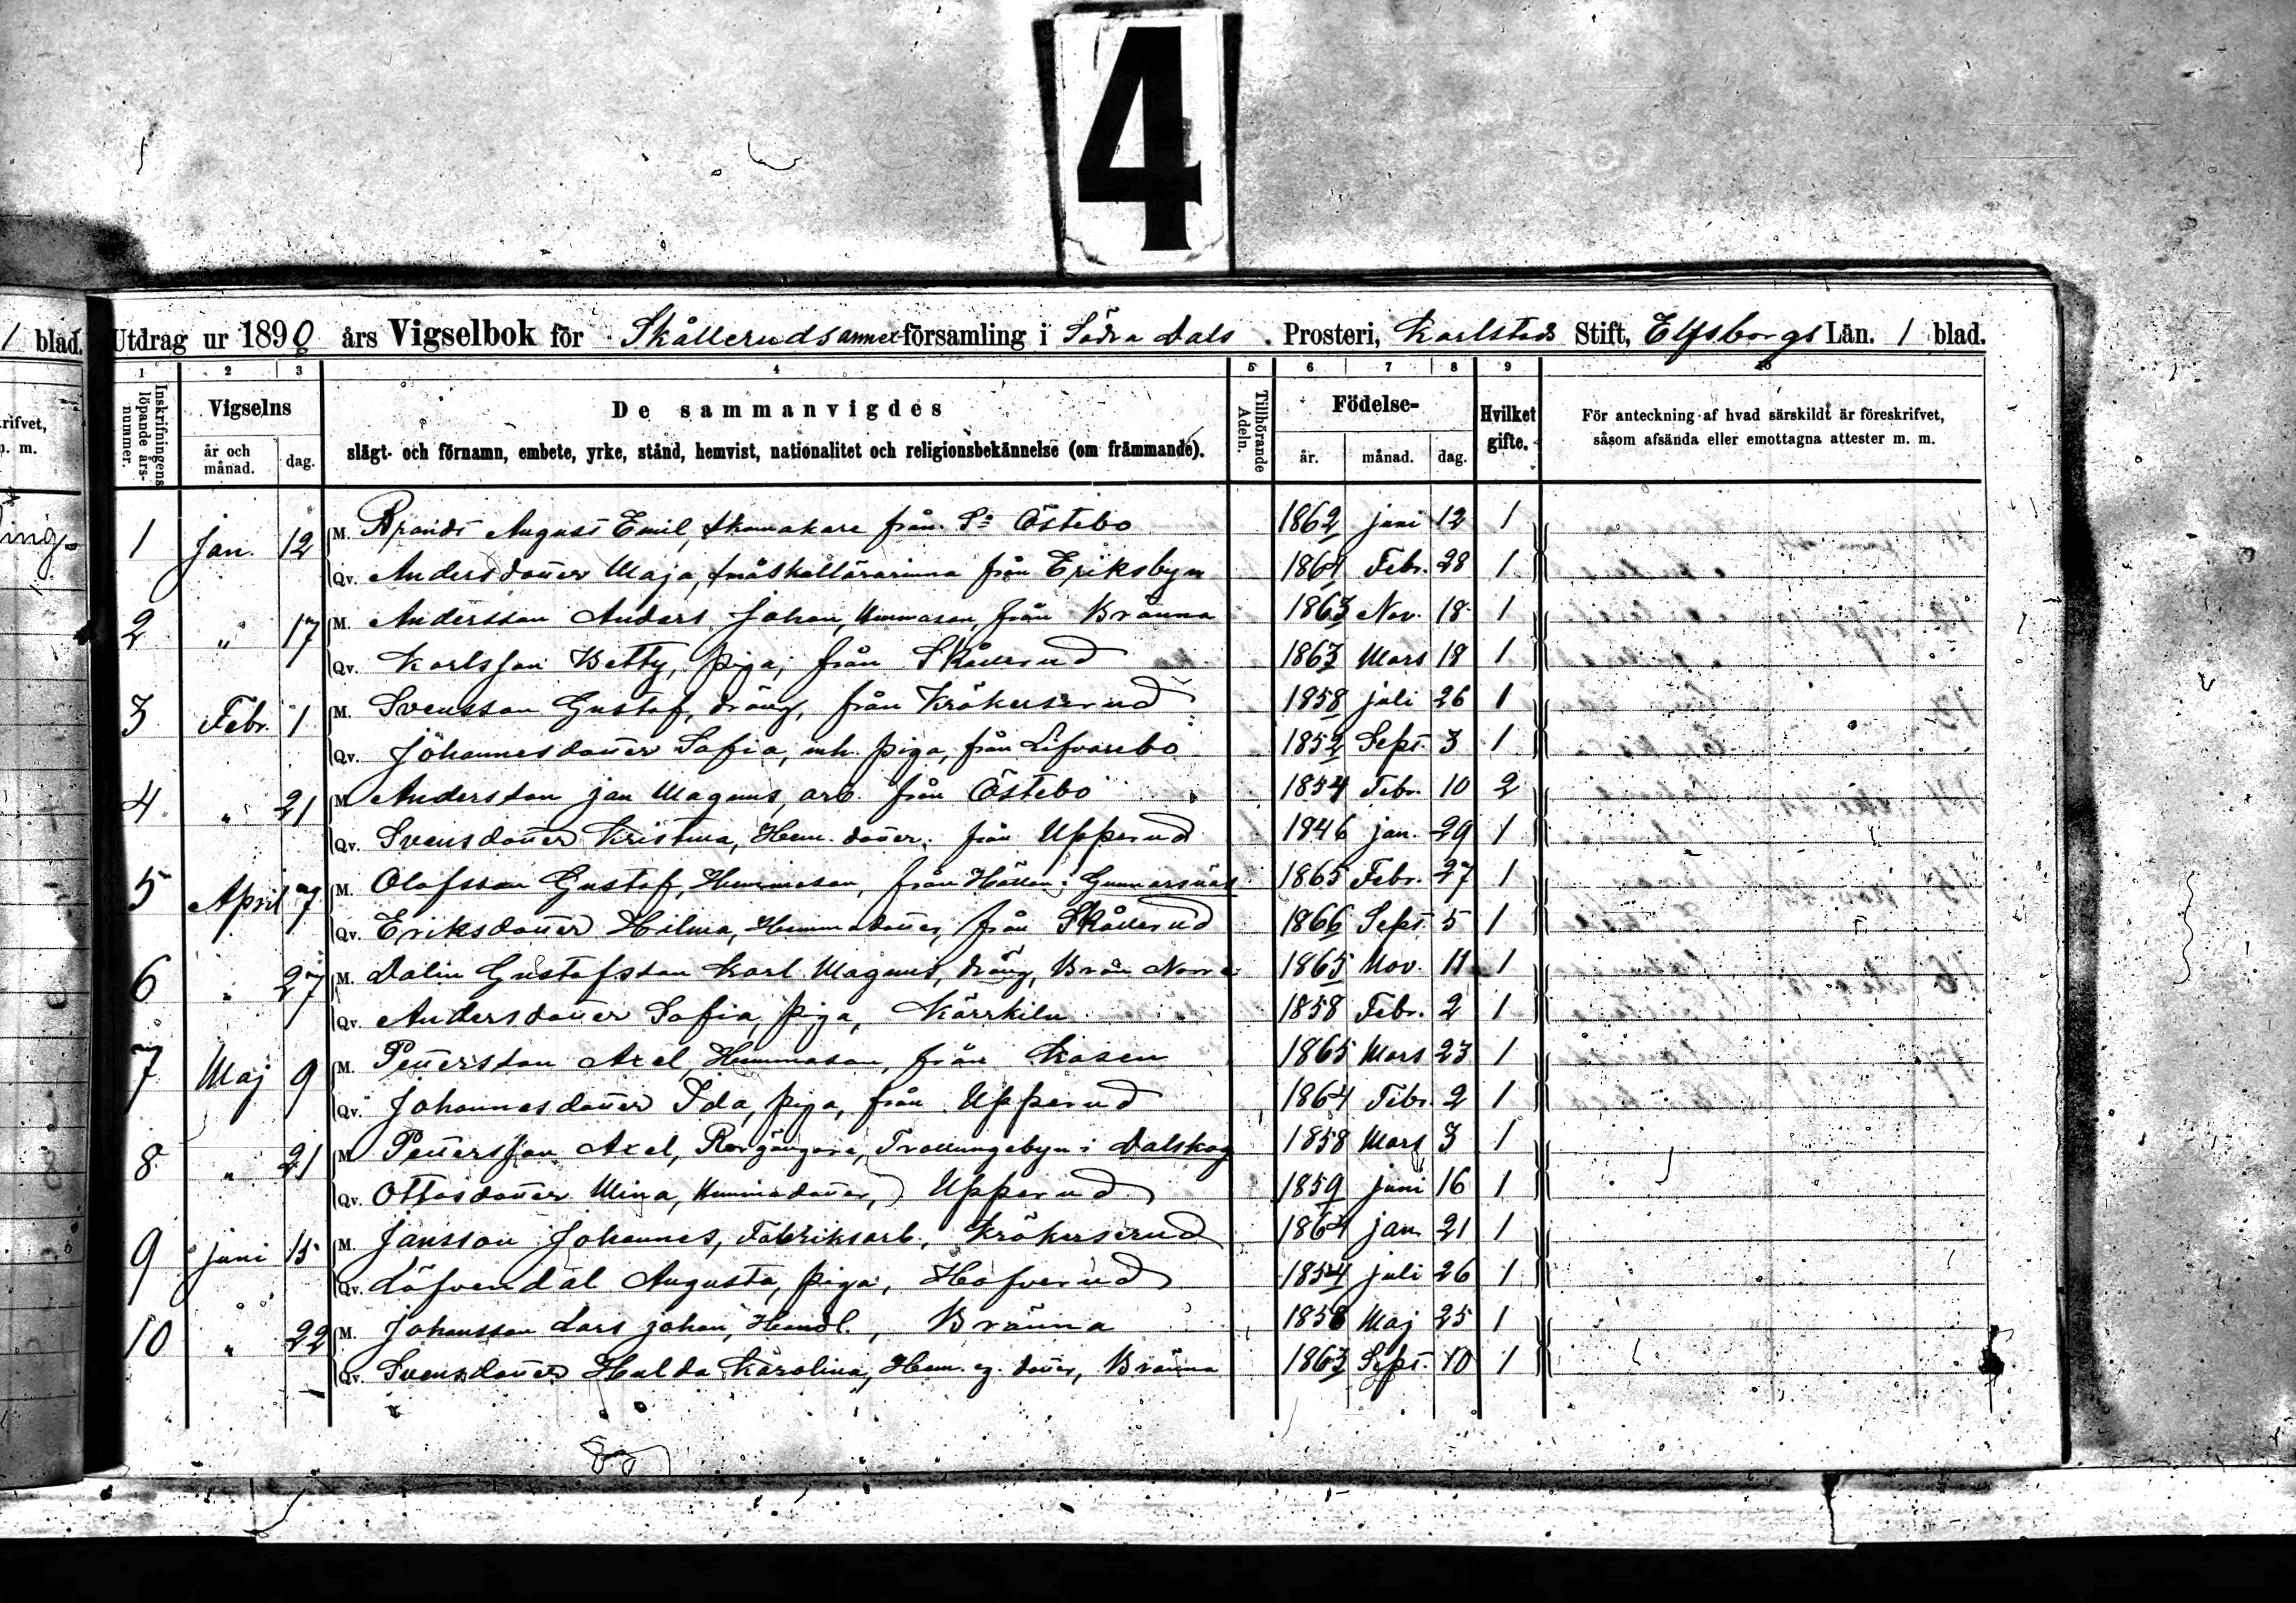 4
1 blad.
Utdrag ur 1890 års Vigselbok för Skållerudsannex-församling i Södra Dals Prosteri, Karlstads Stift, Elfsborgs Län. 1 blad.
1 2 3 4 5 6 7 8 9 10
Inskrifningens löpande års-nummer.
Vigselns
år och månad.
dag.
De sammanvigdes
slägt- och förnamn, embete, yrke, stånd, hemvist, nationalitet och religionsbekännelse (om främmande).
Tillhörande Adeln.
Födelse-
år. månad. dag.
Hvilket gifte.
För anteckning af hvad särskildt är föreskrifvet,
såsom afsända eller emottagna attester m. m.
1 Jan. 12 M. Brandt August Emil, skomakare från Sö Östebo 1862 juni 12 1
Qv. Andersdotter Maja, småskollärarinna från Eriksbyn 1864 Febr. 28 1
2 " 17 M. Andersson Anders Johan, Hemmason, från Bränna 1863 Nov. 18 1
Qv. Karlsson Betty, piga, från Skållerud 1863 Mars 18 1
3 Febr. 1 M. Svensson Gustaf, dräng, från Kråkerserud 1858 juli 26 1
Qv. Johannesdotter Sofia, inh. piga, från Lifvarebo 1852 Sept. 3 1
4 " 21 M. Andersson Jan Magnus, arb. från Östebo 1854 Febr. 10 2
Qv. Svensdotter Kristina, Hem. dotter, från Upperud 1846 jan. 29 1
5 April 7 M. Olofsson Gustaf, Hemmason, från Hällan i Gunnarsnäs 1865 Febr. 27 1
Qv. Eriksdotter Hilma, Hemmadotter, från Skållerud 1866 Sept. 5 1
6 " 27 M. Dalin Gustafsson Karl Magnus, dräng, Brån Norra 1865 Nov. 11 1
Qv. Andersdotter Sofia, piga, Kärrkiln 1858 Febr. 2 1
7 Maj 9 M. Pettersson Axel, Hemmason, från Kasen 1865 Mars 23 1
Qv. Johannesdotter Ida, piga, från Upperud 1864 Febr. 2 1
8 " 21 M. Pettersson Axel, Rorgängare, Trollungebyn i Dalskog 1858 Mars 3 1
Qv. Ottosdotter Mina, Hemmadotter, Upperud 1859 juni 16 1
9 juni 15 M. Jansson Johannes, Fabriksarb., Kråkerserud 1864 jan 21 1
Qv. Löfvendal Augusta, piga, Håfverud 1854 juli 26 1
10 " 22 M. Johansson Lars Johan, Handl., Bränna 1858 Maj 25 1
Qv. Svensdotter Hulda Karolina, Hem. eg. dotter, Bränna 1863 Sept. 10 1